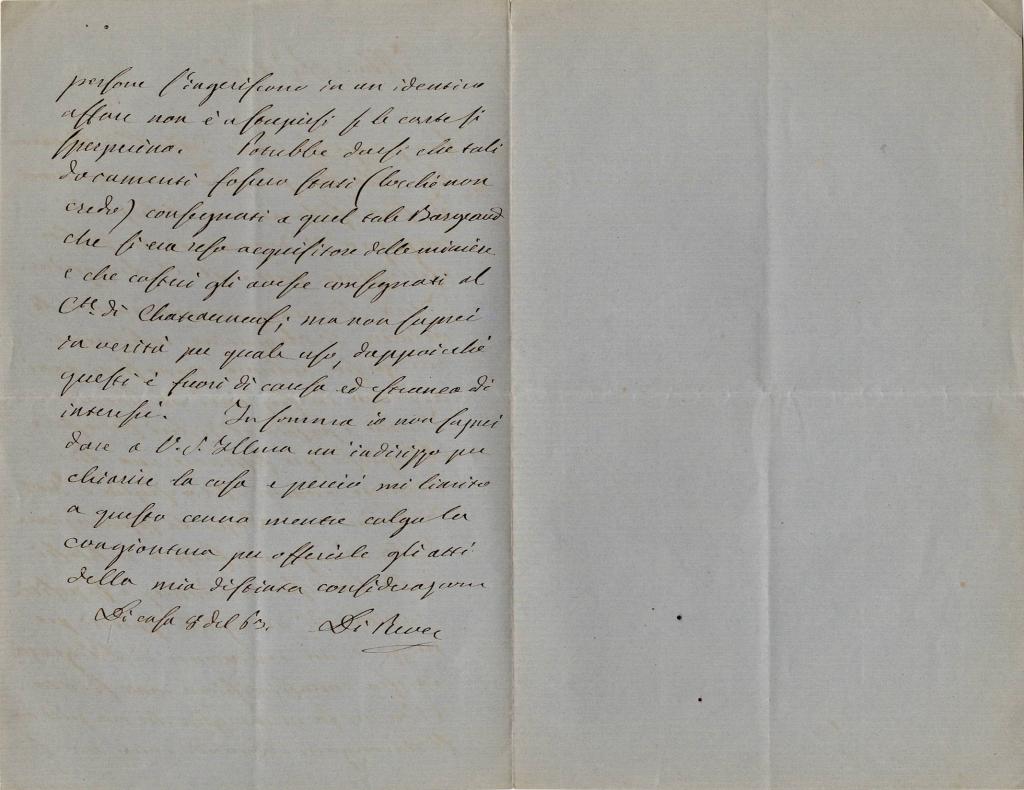 persone s'ingeriscono in un identico
affare non è a stupirsi se le carte si
sperperino. Potrebbe darsi che tali
documenti fossero stati (locché non
credo) consegnati a quel tale
che si era reso acquisitore delle miniere
e che costui gli avesse consegnati al
C.te di Chateauneuf; ma non saprei
in verità per quale uso, dappoicché
questi è fuori di causa ed estraneo di
interessi. In somma io non saprei
dare a V. S. Illma un indirizzo per
chiarire la cosa e perciò mi limito
a questo cenno mentre colgo la
congiontura per offerirle gli atti
della mia distinta considerazione
Di casa 8 del 63. Di Revel